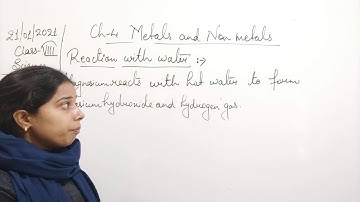 21/01/2021
Class-VIII
Science
Ch-4 Metals and Non metals
Reaction with water :->
reacts with hot water to form
hydroxide and hydrogen gas.